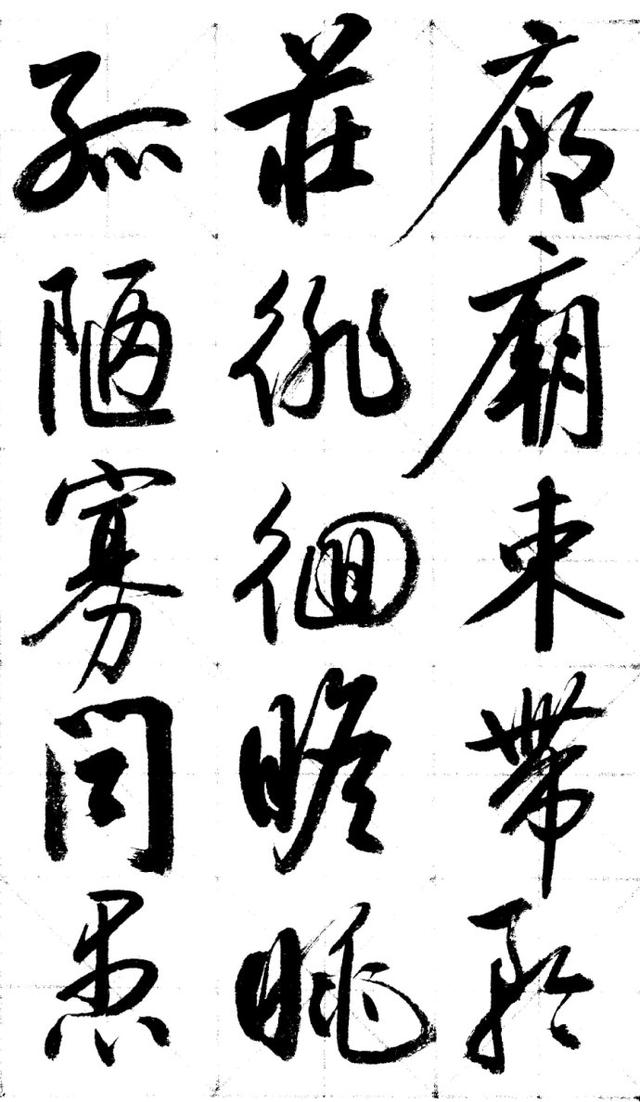 廊廟束帶矜
莊徘徊瞻眺
孤陋寡聞愚